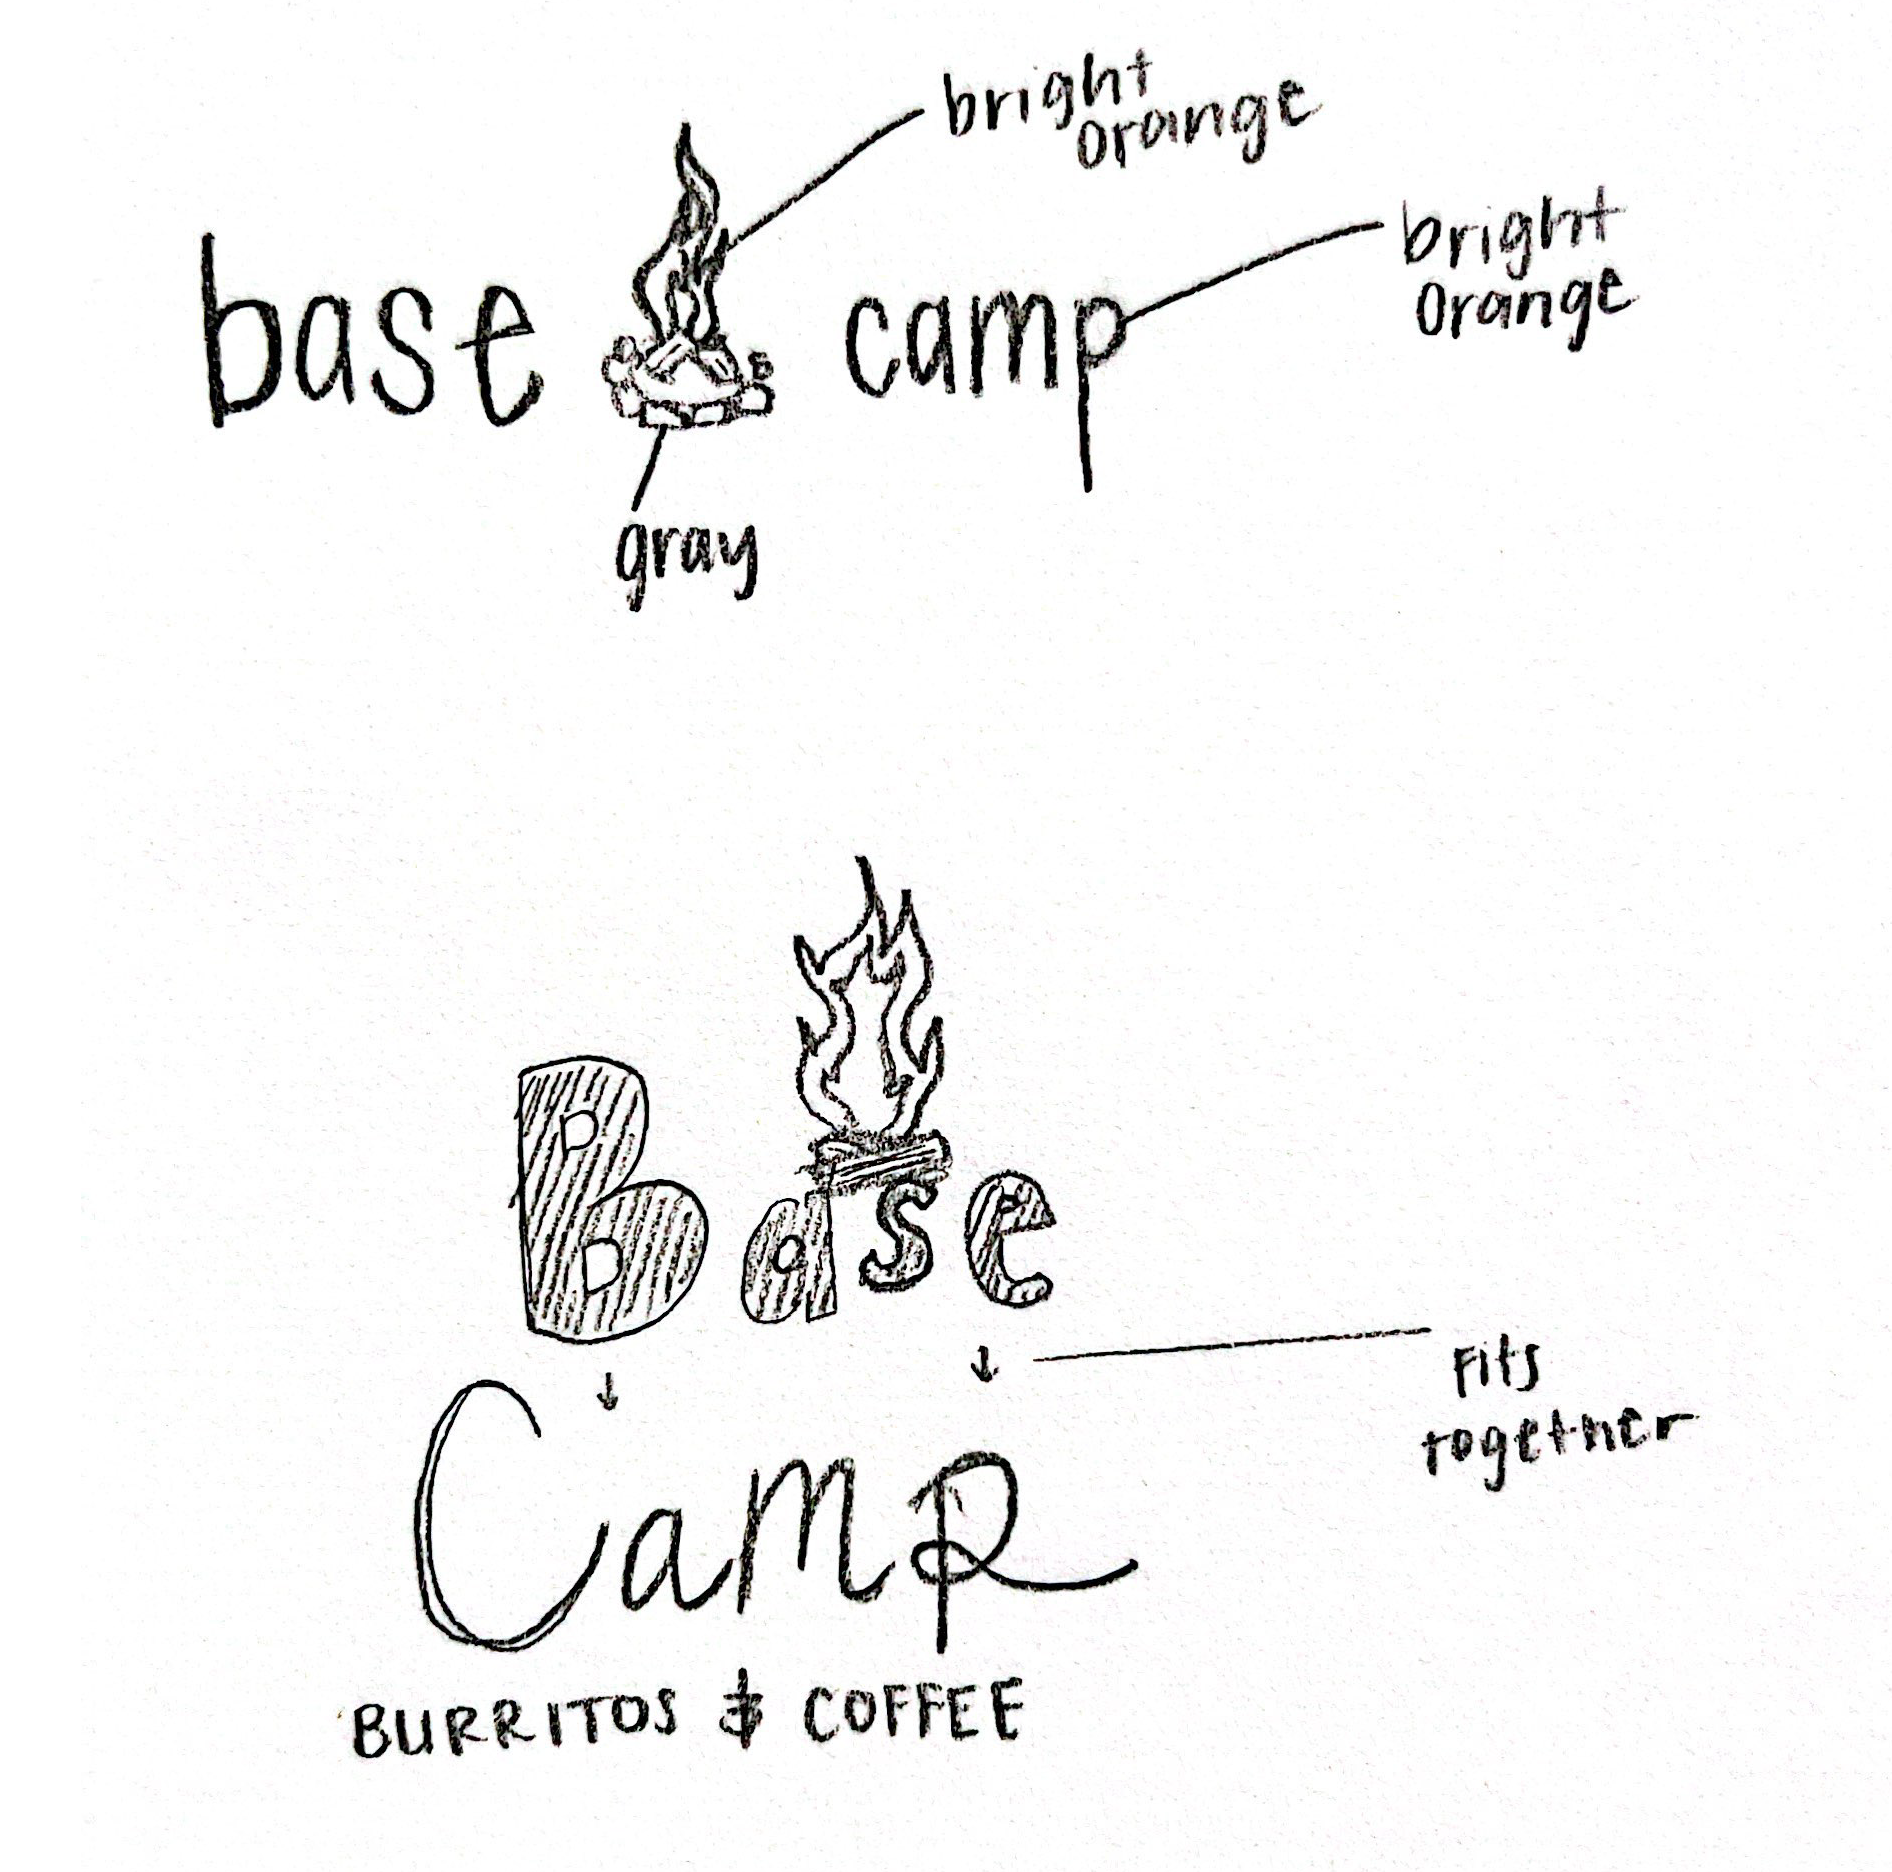 bright
orange
bright
orange
base camp
gray
Base
fits
together
Camp
BURRITOS & COFFEE